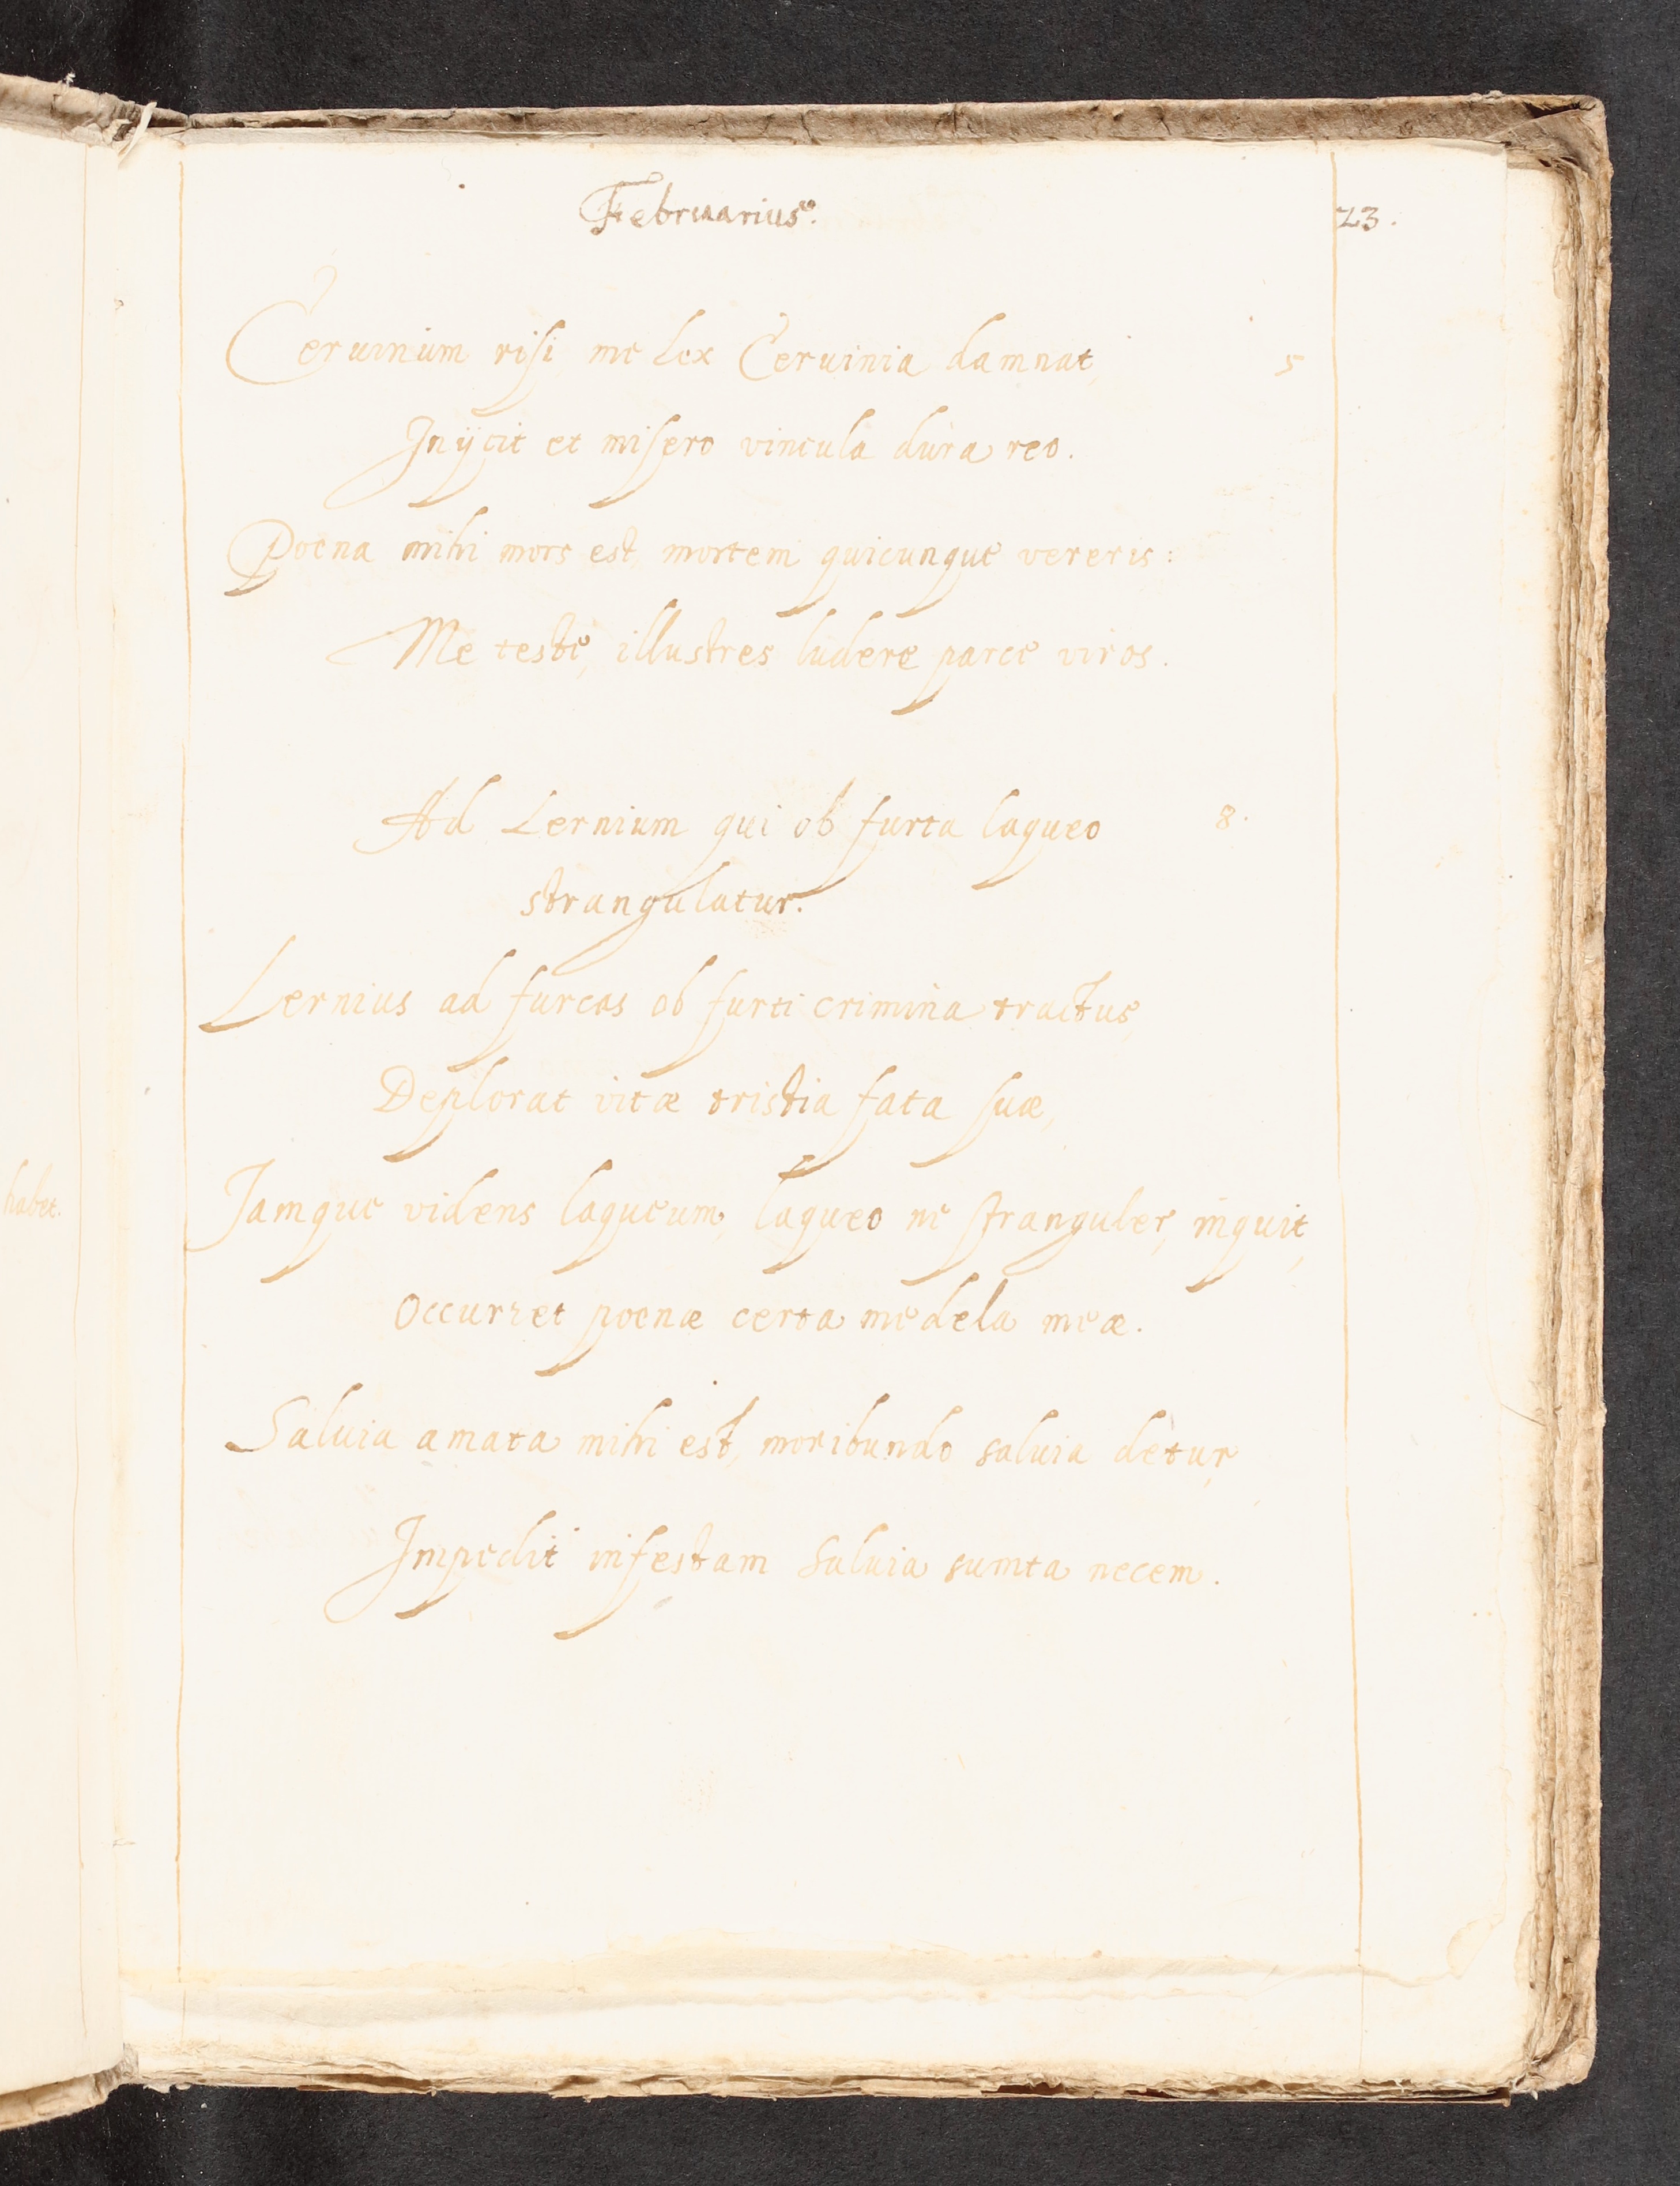 Februarius.
23.
Ceruinum risi, me Lex Ceruinia damnat, 5
Inijcit et misero vincula dura reo.
Poena mihi mors est, mortem quicunque vereris:
Me teste, illustres ludere parce viros.
Ad Lernium qui ob furta laqueo 8.
strangulatur.
Lernius ad furcas ob furti crimina tractus,
Deplorat vitæ tristia fata suæ,
Jamque videns laqueum, laqueo ne stranguler, inquit,
Occurret poenæ certa medela meæ.
Saluia amata mihi est, moribundo saluia detur,
Impedit infestam saluia sumta necem.
habet.